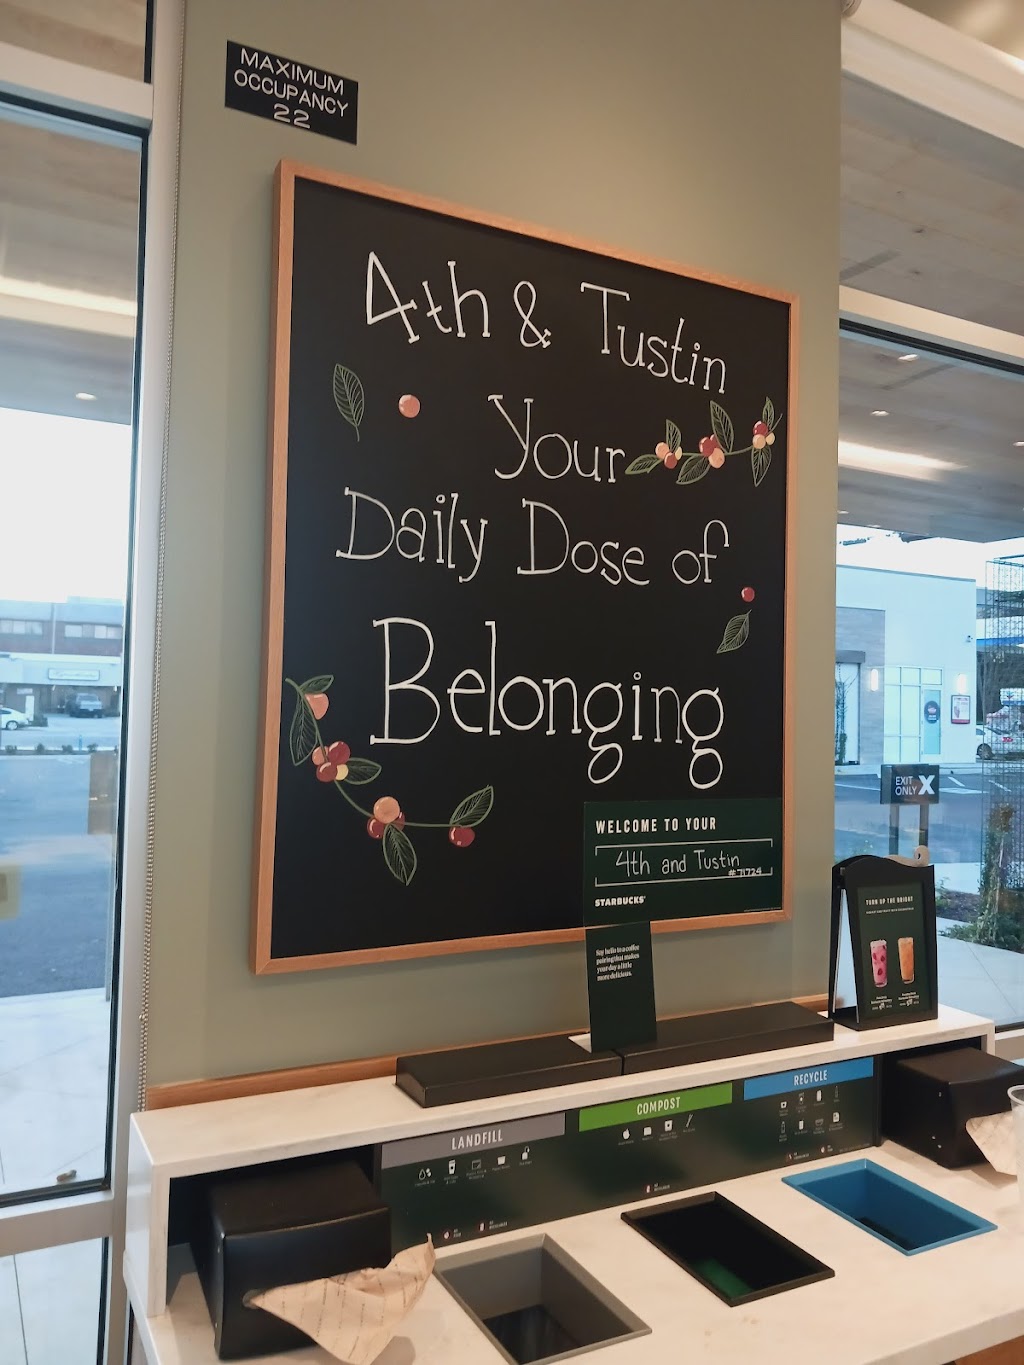 MAXIMUM
OCCUPANCY
22
4th & Tustin
Your
Daily Dose of
Belonging
WELCOME TO YOUR
4th and Tustin
#71724
STARBUCKS
Say hello to a coffee
pairing that makes
your day a little
more delicious.
EXIT
ONLY X
TURN UP THE BRIGHT
LANDFILL
COMPOST
RECYCLE